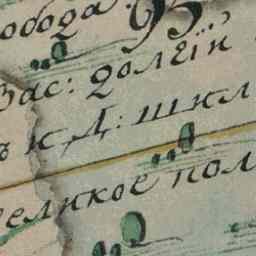 обода.
95.
Зас: долгїй
ъ к Д: шкл
еликое пол